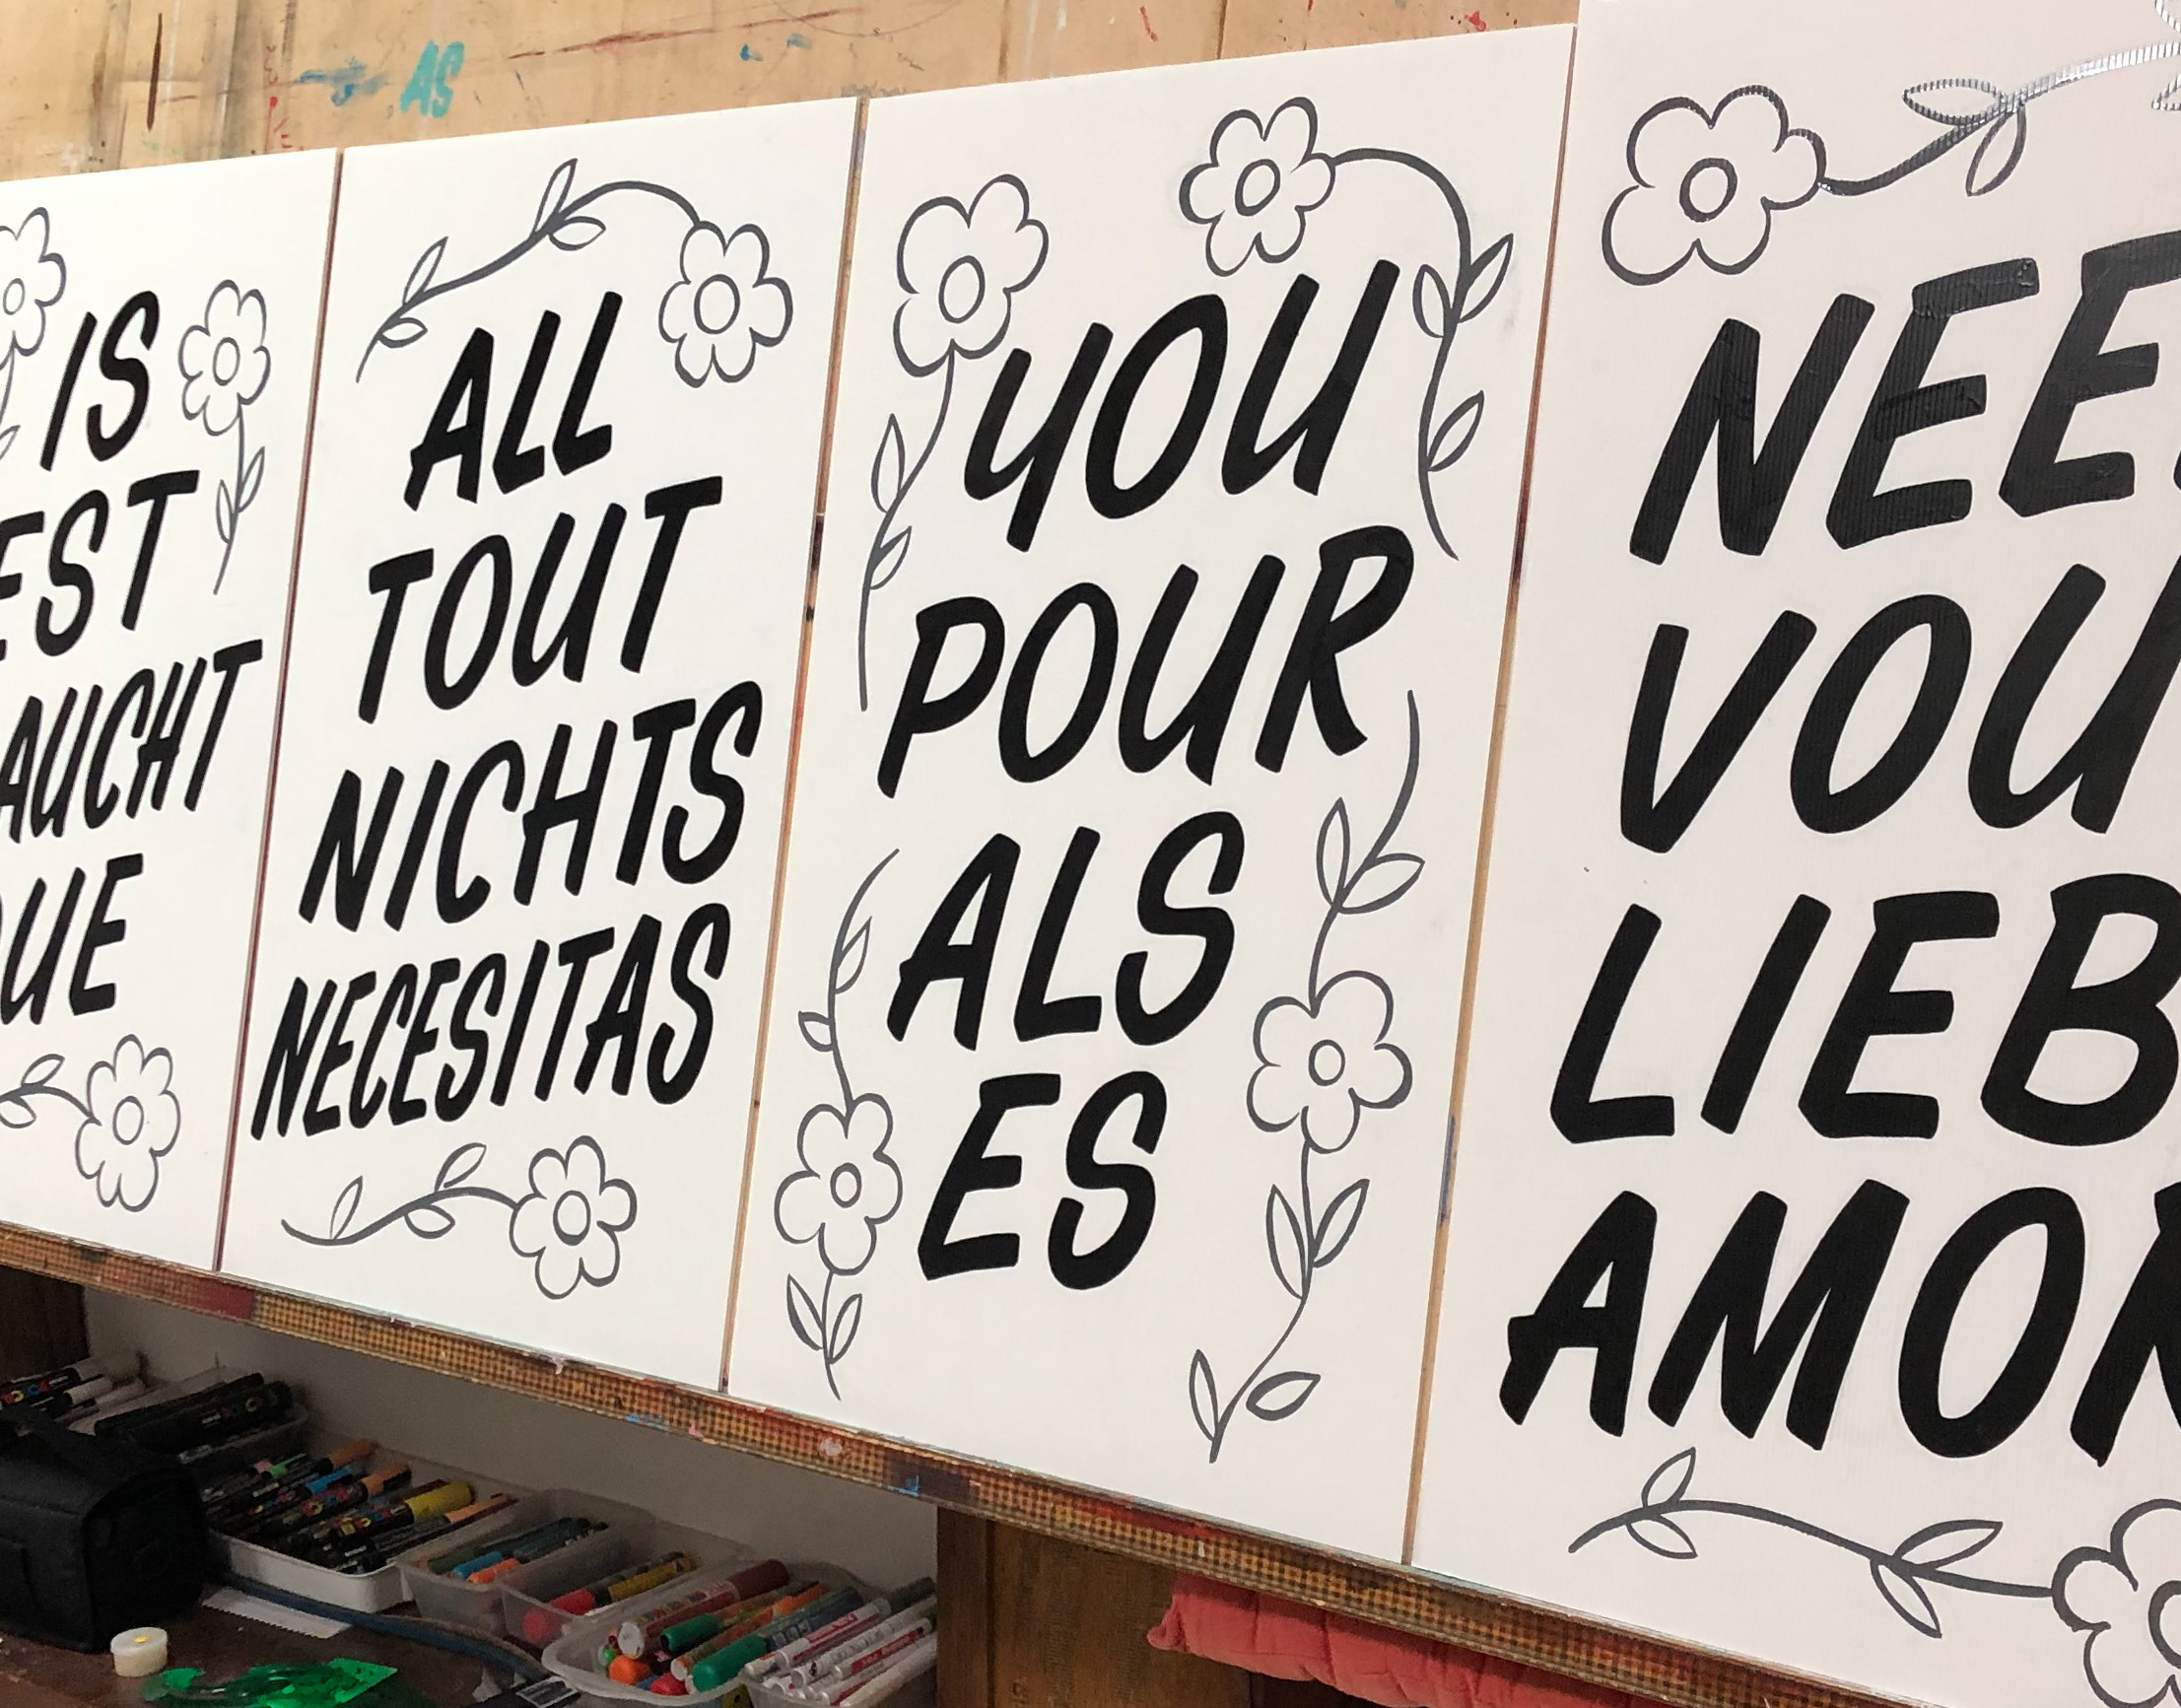 AS
IS
EST
AUCHT
QUE
ALL
TOUT
NICHTS
NECESITAS
YOU
POUR
ALS
ES
NEE
VOU
LIEB
AMOR